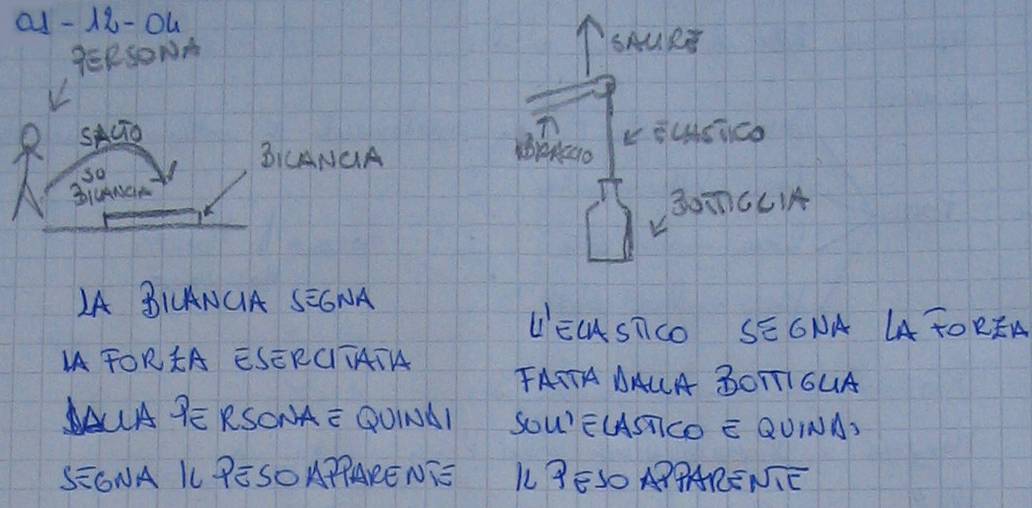 01-12-04
PERSONA
SALTO
SU
BILANCIA
BILANCIA
LA BILANCIA SEGNA
LA FORZA ESERCITATA
DALLA PERSONA E QUINDI
SEGNA IL PESO APPARENTE
SALIRE
BRACCIO
ELASTICO
BOTTIGLIA
L'ELASTICO SEGNA LA FORZA
FATTA DALLA BOTTIGLIA
SULL'ELASTICO E QUINDI
IL PESO APPARENTE